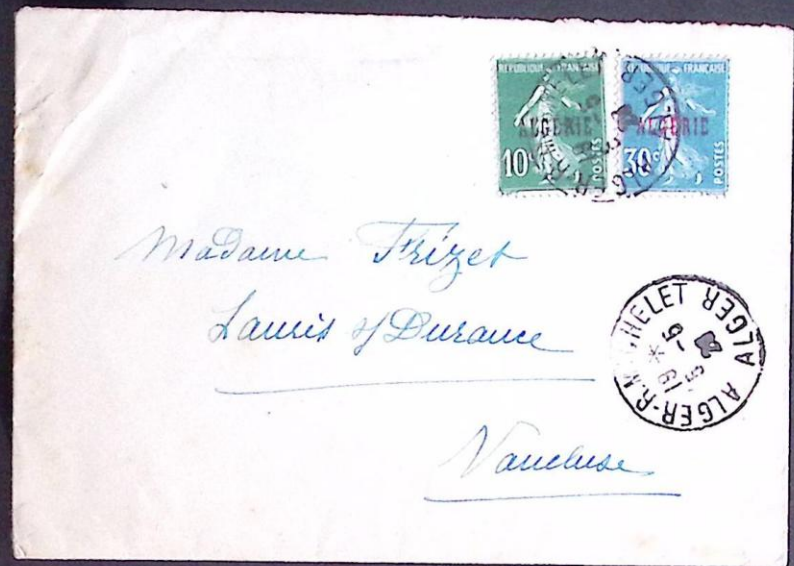 REPUBLIQUE FRANCAISE
ALGERIE
10c POSTES
REPUBLIQUE FRANCAISE
ALGERIE
30c POSTES
Madame Frizet
Lauris s/ Durance
Vaucluse
ALGER-R.MICHELET
ALGER